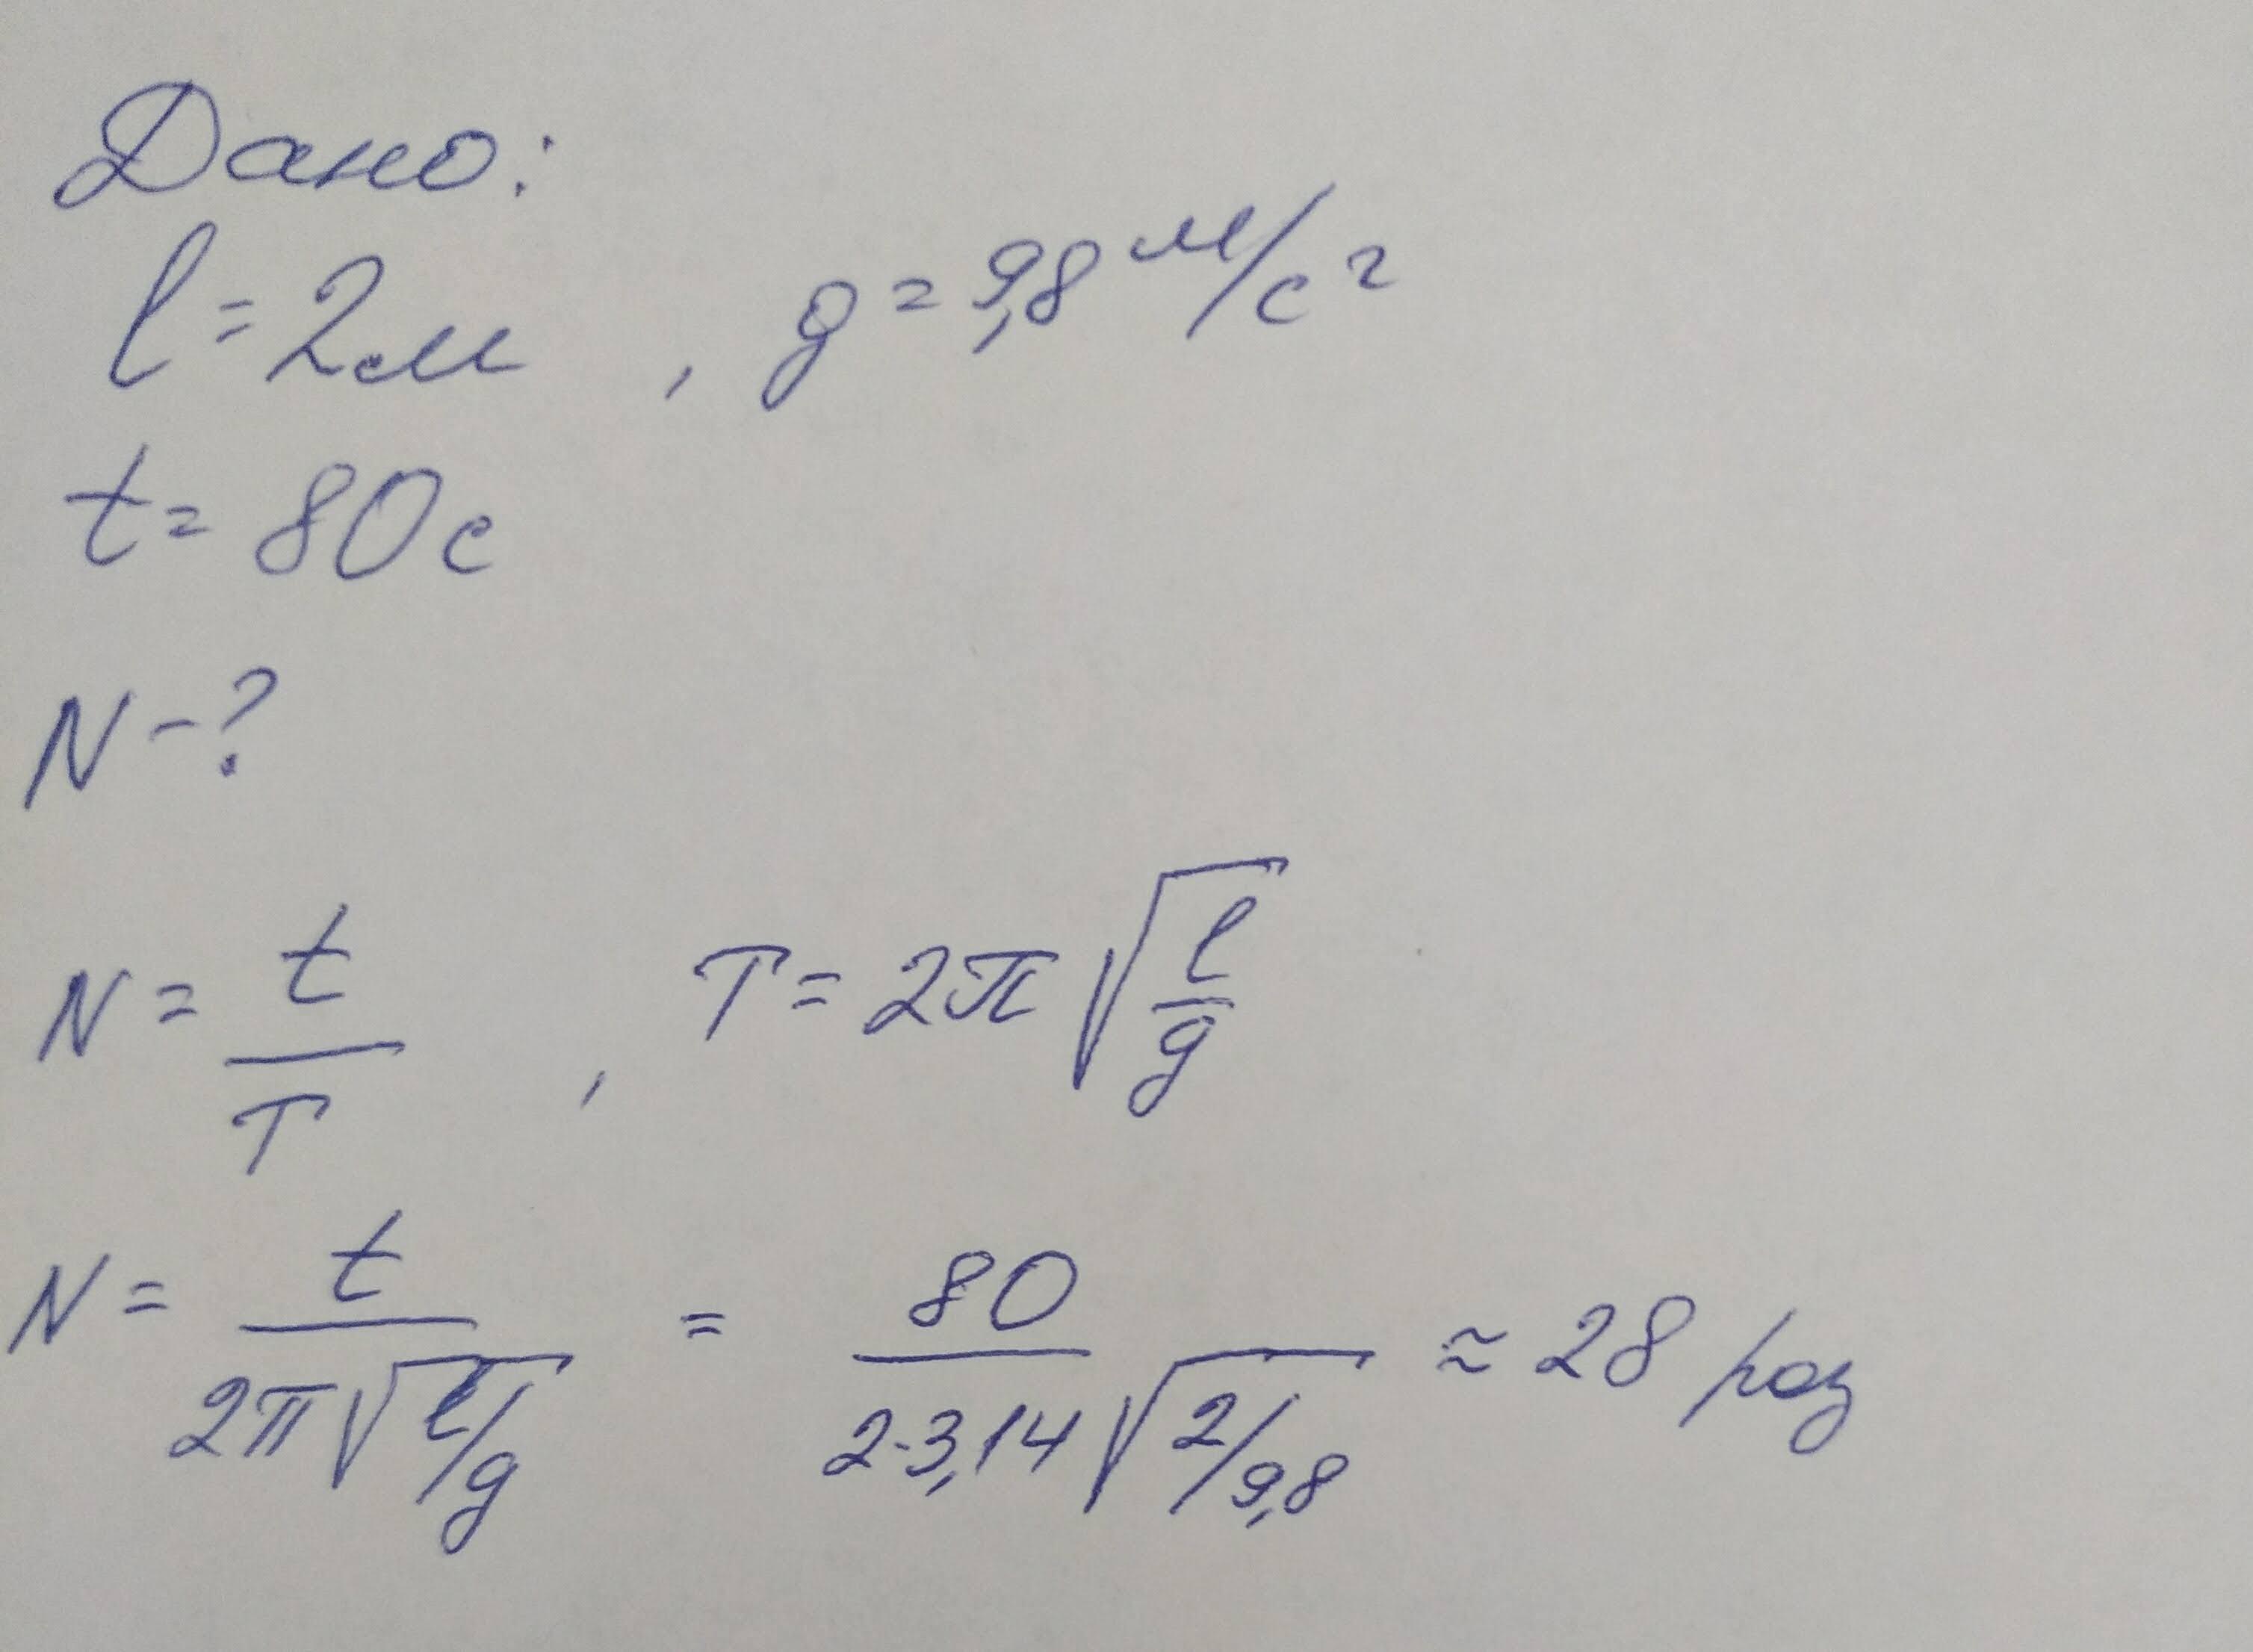 Дано:
l = 2 м, g = 9,8 м/с²
t = 80 с
N - ?
N = t/T, T = 2π√(l/g)
N = t/(2π√(l/g)) = 80/(2·3,14√(2/9,8)) ≈ 28 раз